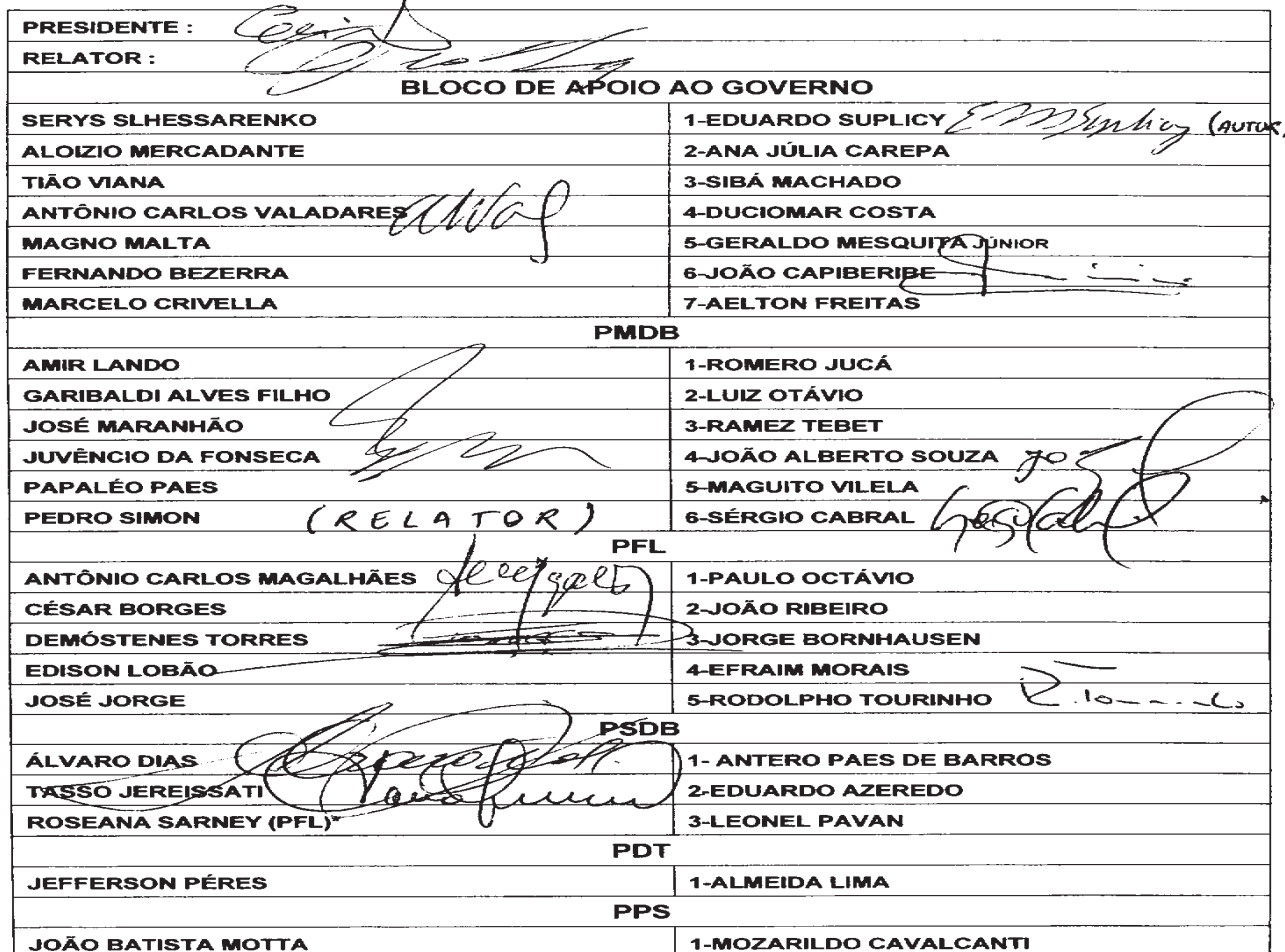 PRESIDENTE :
RELATOR :
BLOCO DE APOIO AO GOVERNO
SERYS SLHESSARENKO 1-EDUARDO SUPLICY E M Suplicy (AUTOR)
ALOIZIO MERCADANTE 2-ANA JÚLIA CAREPA
TIÃO VIANA 3-SIBÁ MACHADO
ANTÔNIO CARLOS VALADARES 4-DUCIOMAR COSTA
MAGNO MALTA 5-GERALDO MESQUITA JÚNIOR
FERNANDO BEZERRA 6-JOÃO CAPIBERIBE
MARCELO CRIVELLA 7-AELTON FREITAS
PMDB
AMIR LANDO 1-ROMERO JUCÁ
GARIBALDI ALVES FILHO 2-LUIZ OTÁVIO
JOSÉ MARANHÃO 3-RAMEZ TEBET
JUVÊNCIO DA FONSECA 4-JOÃO ALBERTO SOUZA
PAPALÉO PAES 5-MAGUITO VILELA
PEDRO SIMON (RELATOR) 6-SÉRGIO CABRAL
PFL
ANTÔNIO CARLOS MAGALHÃES 1-PAULO OCTÁVIO
CÉSAR BORGES 2-JOÃO RIBEIRO
DEMÓSTENES TORRES 3-JORGE BORNHAUSEN
EDISON LOBÃO 4-EFRAIM MORAIS
JOSÉ JORGE 5-RODOLPHO TOURINHO
PSDB
ÁLVARO DIAS 1- ANTERO PAES DE BARROS
TASSO JEREISSATI 2-EDUARDO AZEREDO
ROSEANA SARNEY (PFL)* 3-LEONEL PAVAN
PDT
JEFFERSON PÉRES 1-ALMEIDA LIMA
PPS
JOÃO BATISTA MOTTA 1-MOZARILDO CAVALCANTI